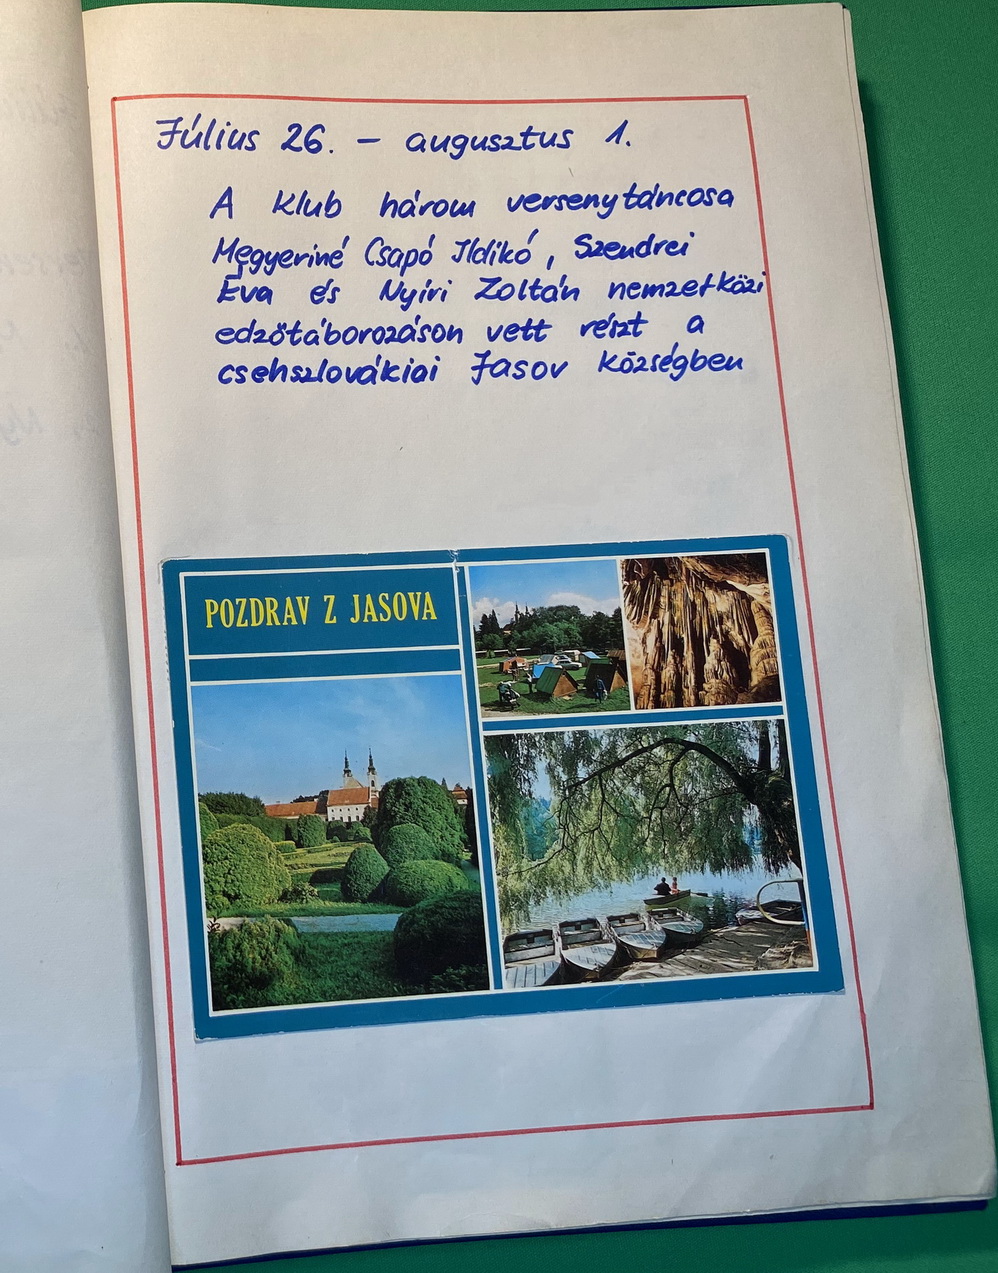 Július 26. – augusztus 1.
A klub három versenytáncosa
Megyeriné Csapó Ildikó, Szendrei
Éva és Nyíri Zoltán nemzetközi
edzőtáborozáson vett részt a
csehszlovákiai Jasov községben
POZDRAV Z JASOVA